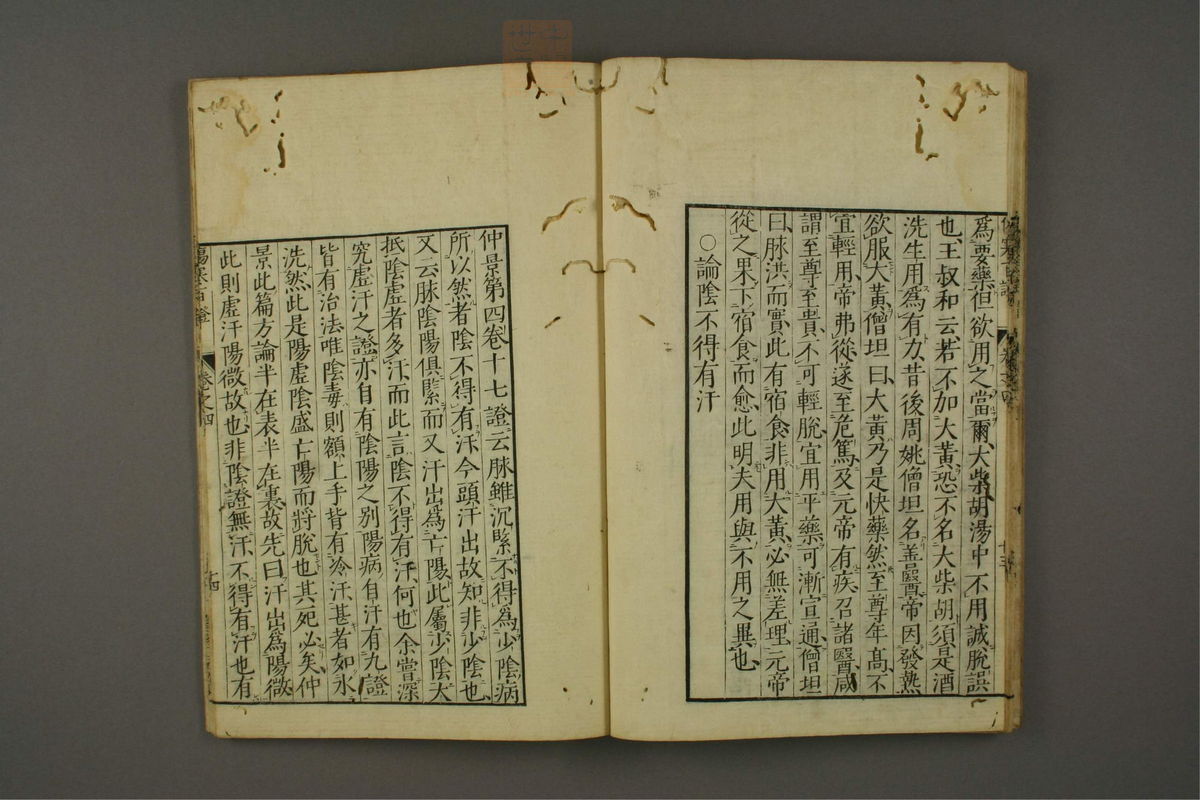 為要藥但欲用之當爾大柴胡湯中不用誠脫誤
也王叔和云若不加大黃恐不名大柴胡須是酒
洗生用為有力昔後周姚僧坦名善醫帝因發熱
欲服大黃僧坦曰大黃乃是快藥然至尊年高不
宜輕用帝弗從遂至危篤及元帝有疾召諸醫咸
謂至尊至貴不可輕脫宜用平藥可漸宣通僧坦
曰脉洪而實此有宿食非用大黃必無差理元帝
從之果下宿食而愈此明夫用與不用之異也
○論陰不得有汗
仲景第四卷十七證云脉雖沉緊不得為少陰病
所以然者陰不得有汗今頭汗出故知非少陰也
又云脉陰陽俱緊而又汗出為亡陽此屬少陰大
抵陰虛者多汗而此言陰不得有汗何也余嘗深
究虛汗之證亦自有陰陽之别陽病自汗有九證
皆有治法唯陰毒則額上手背有冷汗甚者如水
洗然此是陽虛陰盛亡陽而將脫也其死必矣仲
景此篇方論半在表半在裏故先曰汗出為陽微
此則虛汗陽微故也非陰證無汗不得有汗也有
傷寒百證 卷之四